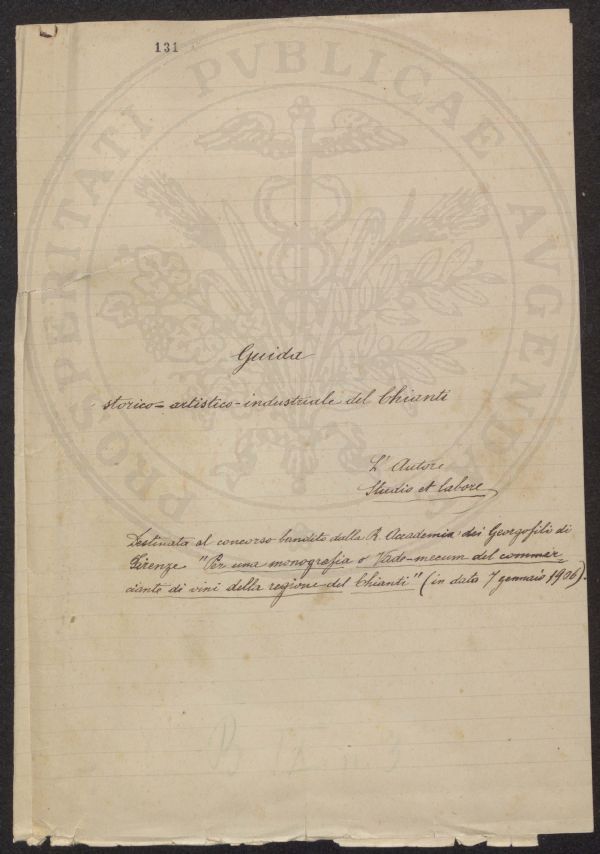 131
PROSPERITATI PVBLICAE AVGENDAE
Guida
storico=artistico-industriale del Chianti
L'Autore
Studio et labore
Destinata al concorso bandito dalla R. Accademia dei Georgofili di
Firenze "Per una monografia o Vade-mecum del commer-
ciante di vini della regione del Chianti" (in data 7 gennaio 1906).
B IX. n. 3